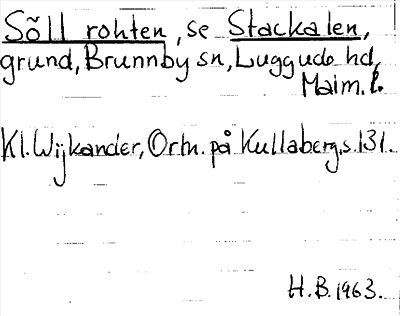 Söll rohten, se Stackalen,
grund, Brunnby sn, Luggude hd,
Malm. l.
Kl. Wijkander, Ortn. på Kullaberg, s. 131.
H.B. 1963.